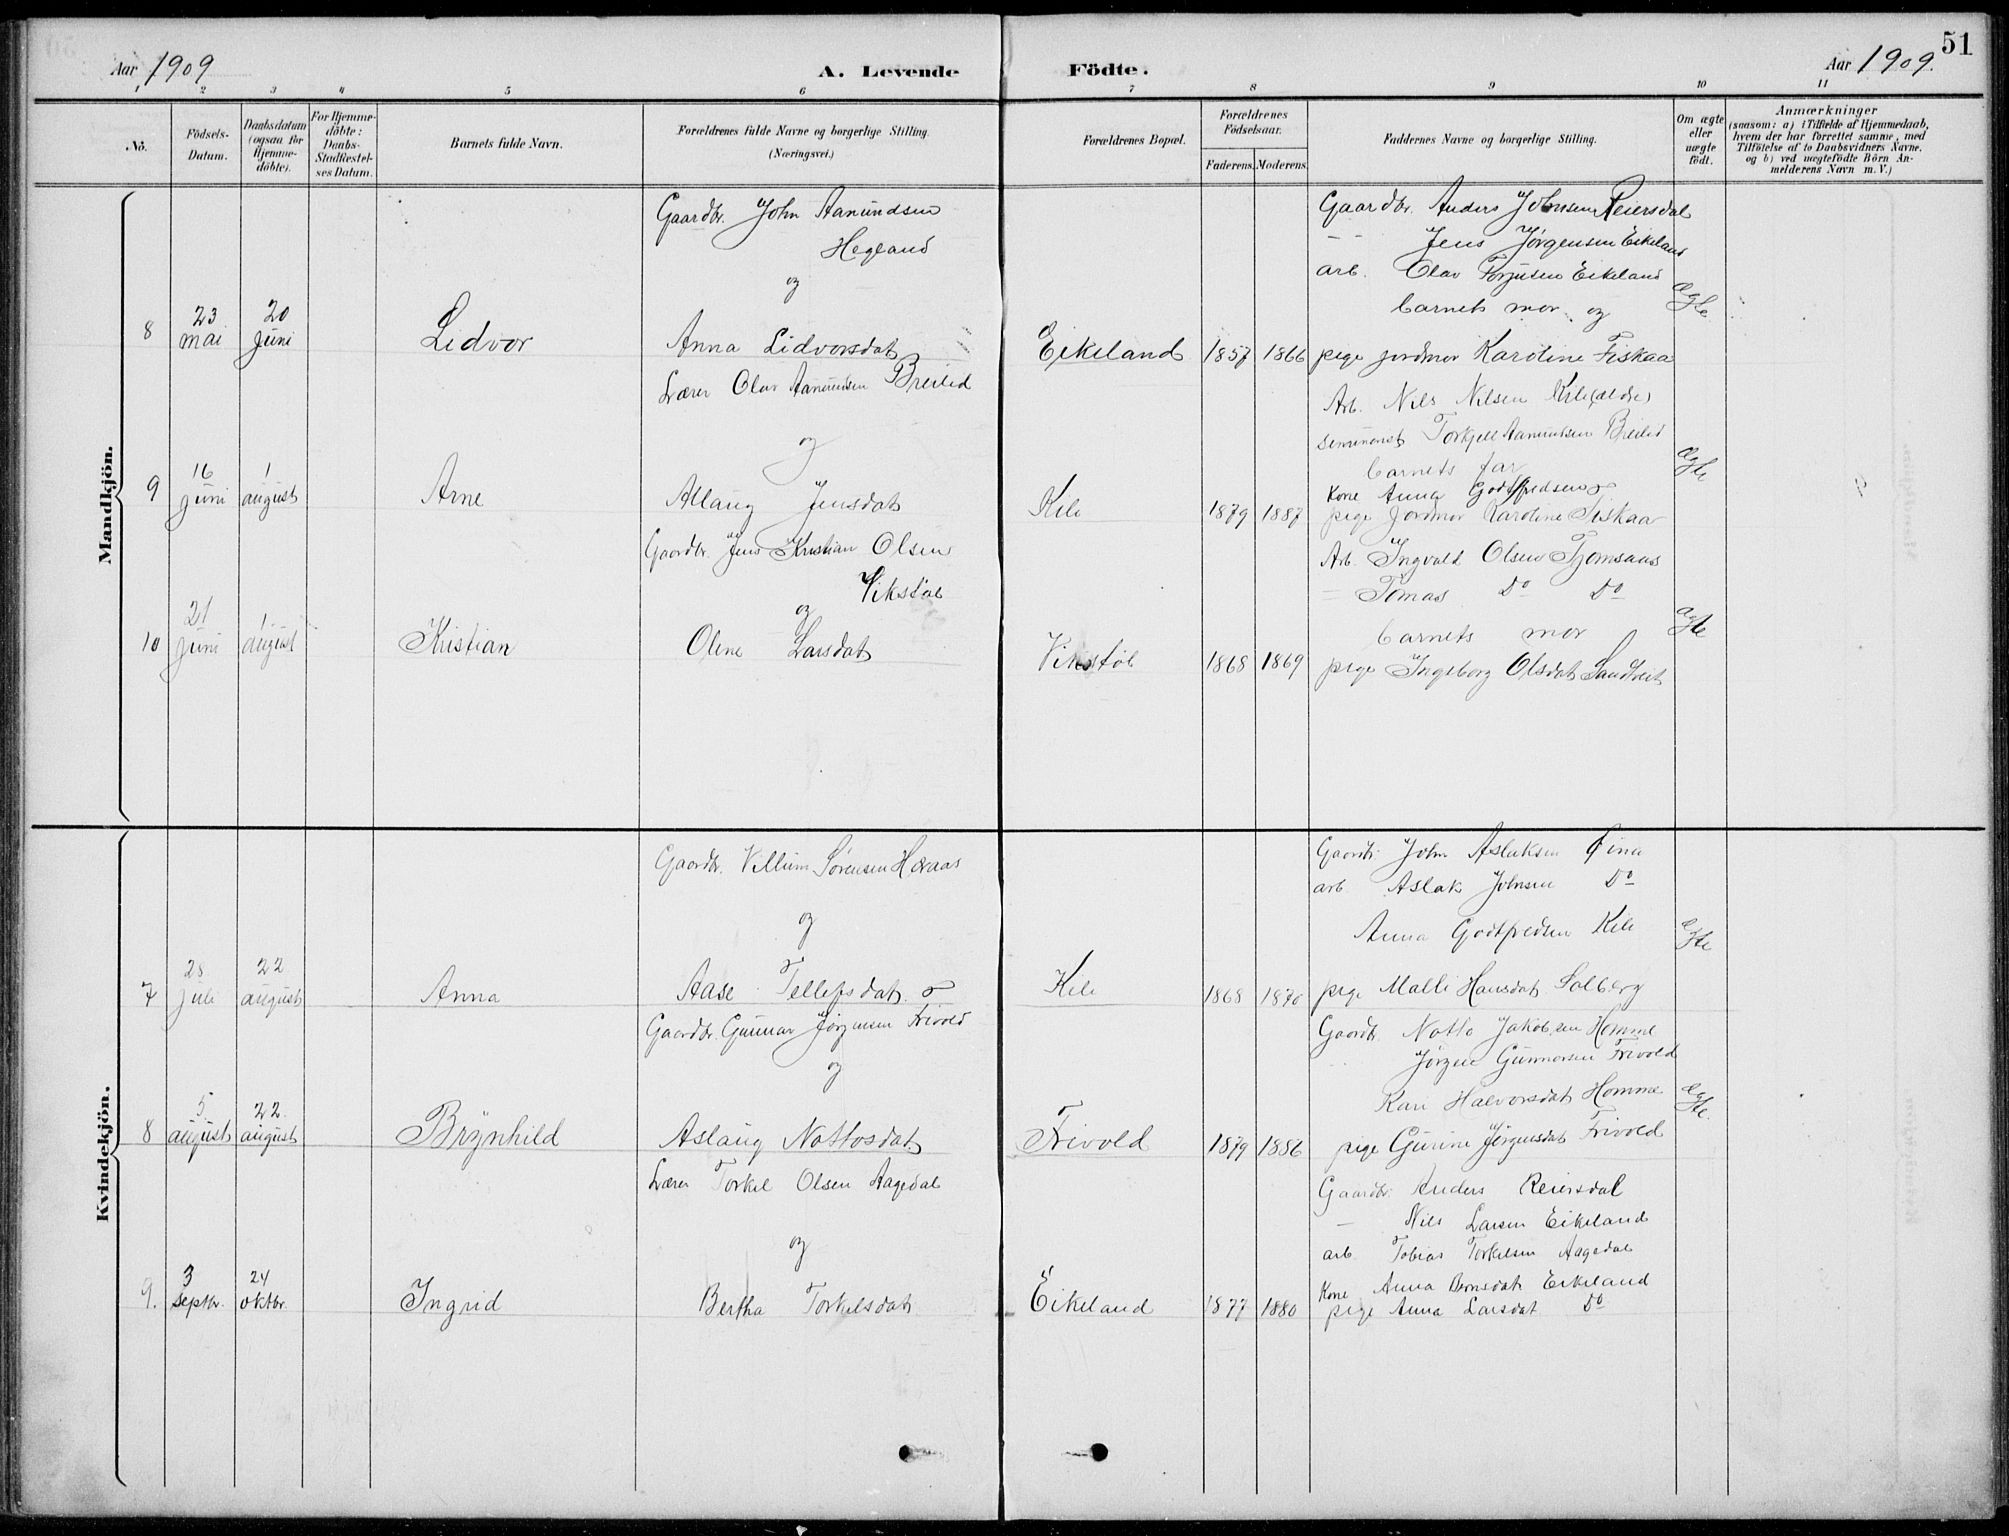 51
Aar 1909
A. Levende Födte.
Aar 1909.
1 2 3 4 5 6 7 8 9 10 11
Nö.
Födsels-Datum.
Daabsdatum (ogsaa for Hjemme-döbte).
For Hjemme-döbte: Daabs-Stadfæstel-ses Datum.
Barnets fulde Navn.
Forældrenes fulde Navne og borgerlige Stilling. (Næringsvei.)
Forældrenes Bopæl.
Forældrenes Födselsaar.
Faderens. Moderens.
Faddernes Navne og borgerlige Stilling.
Om ægte eller uægte født.
Anmærkninger
(saasom: a) i Tilfælde af Hjemmedaab, hvem der har forrettet samme, med Tilföielse af to Daabsvidners Navne, og b) ved uægtefödte Börn An-melderens Navn m. V.)
Mandkjön.
8
23 mai
20 juni
Lidvor
Gaardbr. John Aanundsen
Hegland
og
Anna Lidvorsdat
Eikeland
1857 1866
Gaardbr. Anders Johnsen Reiersdal
— Jens Jørgensen Eikeland
arb. Olav Torjusen Eikeland
barnets mor og
pige jordmor Karoline Fiskaa
ægte
9
16 juni
1 august
Arne
Lærer Olav Aanundsen Breilid
og
Allaug Jensdat
Kile
1879 1887
Arb. Nils Nilsen Kile (ældre)
seminarist Torkjell Aanundsen Breilid
barnets far
Kone Anna Godtfredsen
pige jordmor Karoline Fiskaa
ægte
10
21 juni
1 august
Kristian
Gaardbr. Jens Kristian Olsen
Vikstøl
og
Olene Larsdat
Vikstøl
1868 1869
Arb. Ingvald Olsen Tjomsaas
— Tomas Do Do
barnets mor
pige Ingeborg Olsdat Sandveit
ægte
Kvindekjön.
7
28 juli
22 august
Anna
Gaardbr. Villum Sørensen Høraas
og
Aase Tellefsdat
Kile
1868 1870
Gaardbr. John Aslaksen Øina
arb. Aslak Johnsen Do
Anna Godtfredsen Kile
pige Malli Hansdat Solberg
ægte
8
5 august
22 august
Brynhild
Gaardbr. Gunnar Jørgensen Frivold
og
Aslaug Nottosdat
Frivold
1879 1886
Gaardbr. Notto Jakobsen Homme
Jørgen Gunnarsen Frivold
Kari Halvorsdat Homme
pige Gurine Jørgensdat Frivold
ægte
9.
3 septbr.
24 oktbr.
Ingrid
Lærer Torkel Olsen Aagedal
og
Bertha Torkelsdat
Eikeland
1877 1880
Gaardbr. Anders Reiersdal
— Nils Larsen Eikeland
arb. Tobias Torkelsen Aagedal
Kone Anna Bernsdat Eikeland
pige Anna Larsdat Do